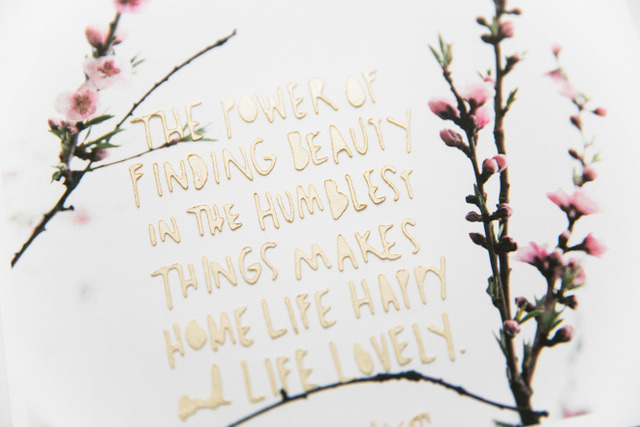 THE POWER OF
FINDING BEAUTY
IN THE HUMBLEST
THINGS MAKES
HOME LIFE HAPPY
and LIFE LOVELY.